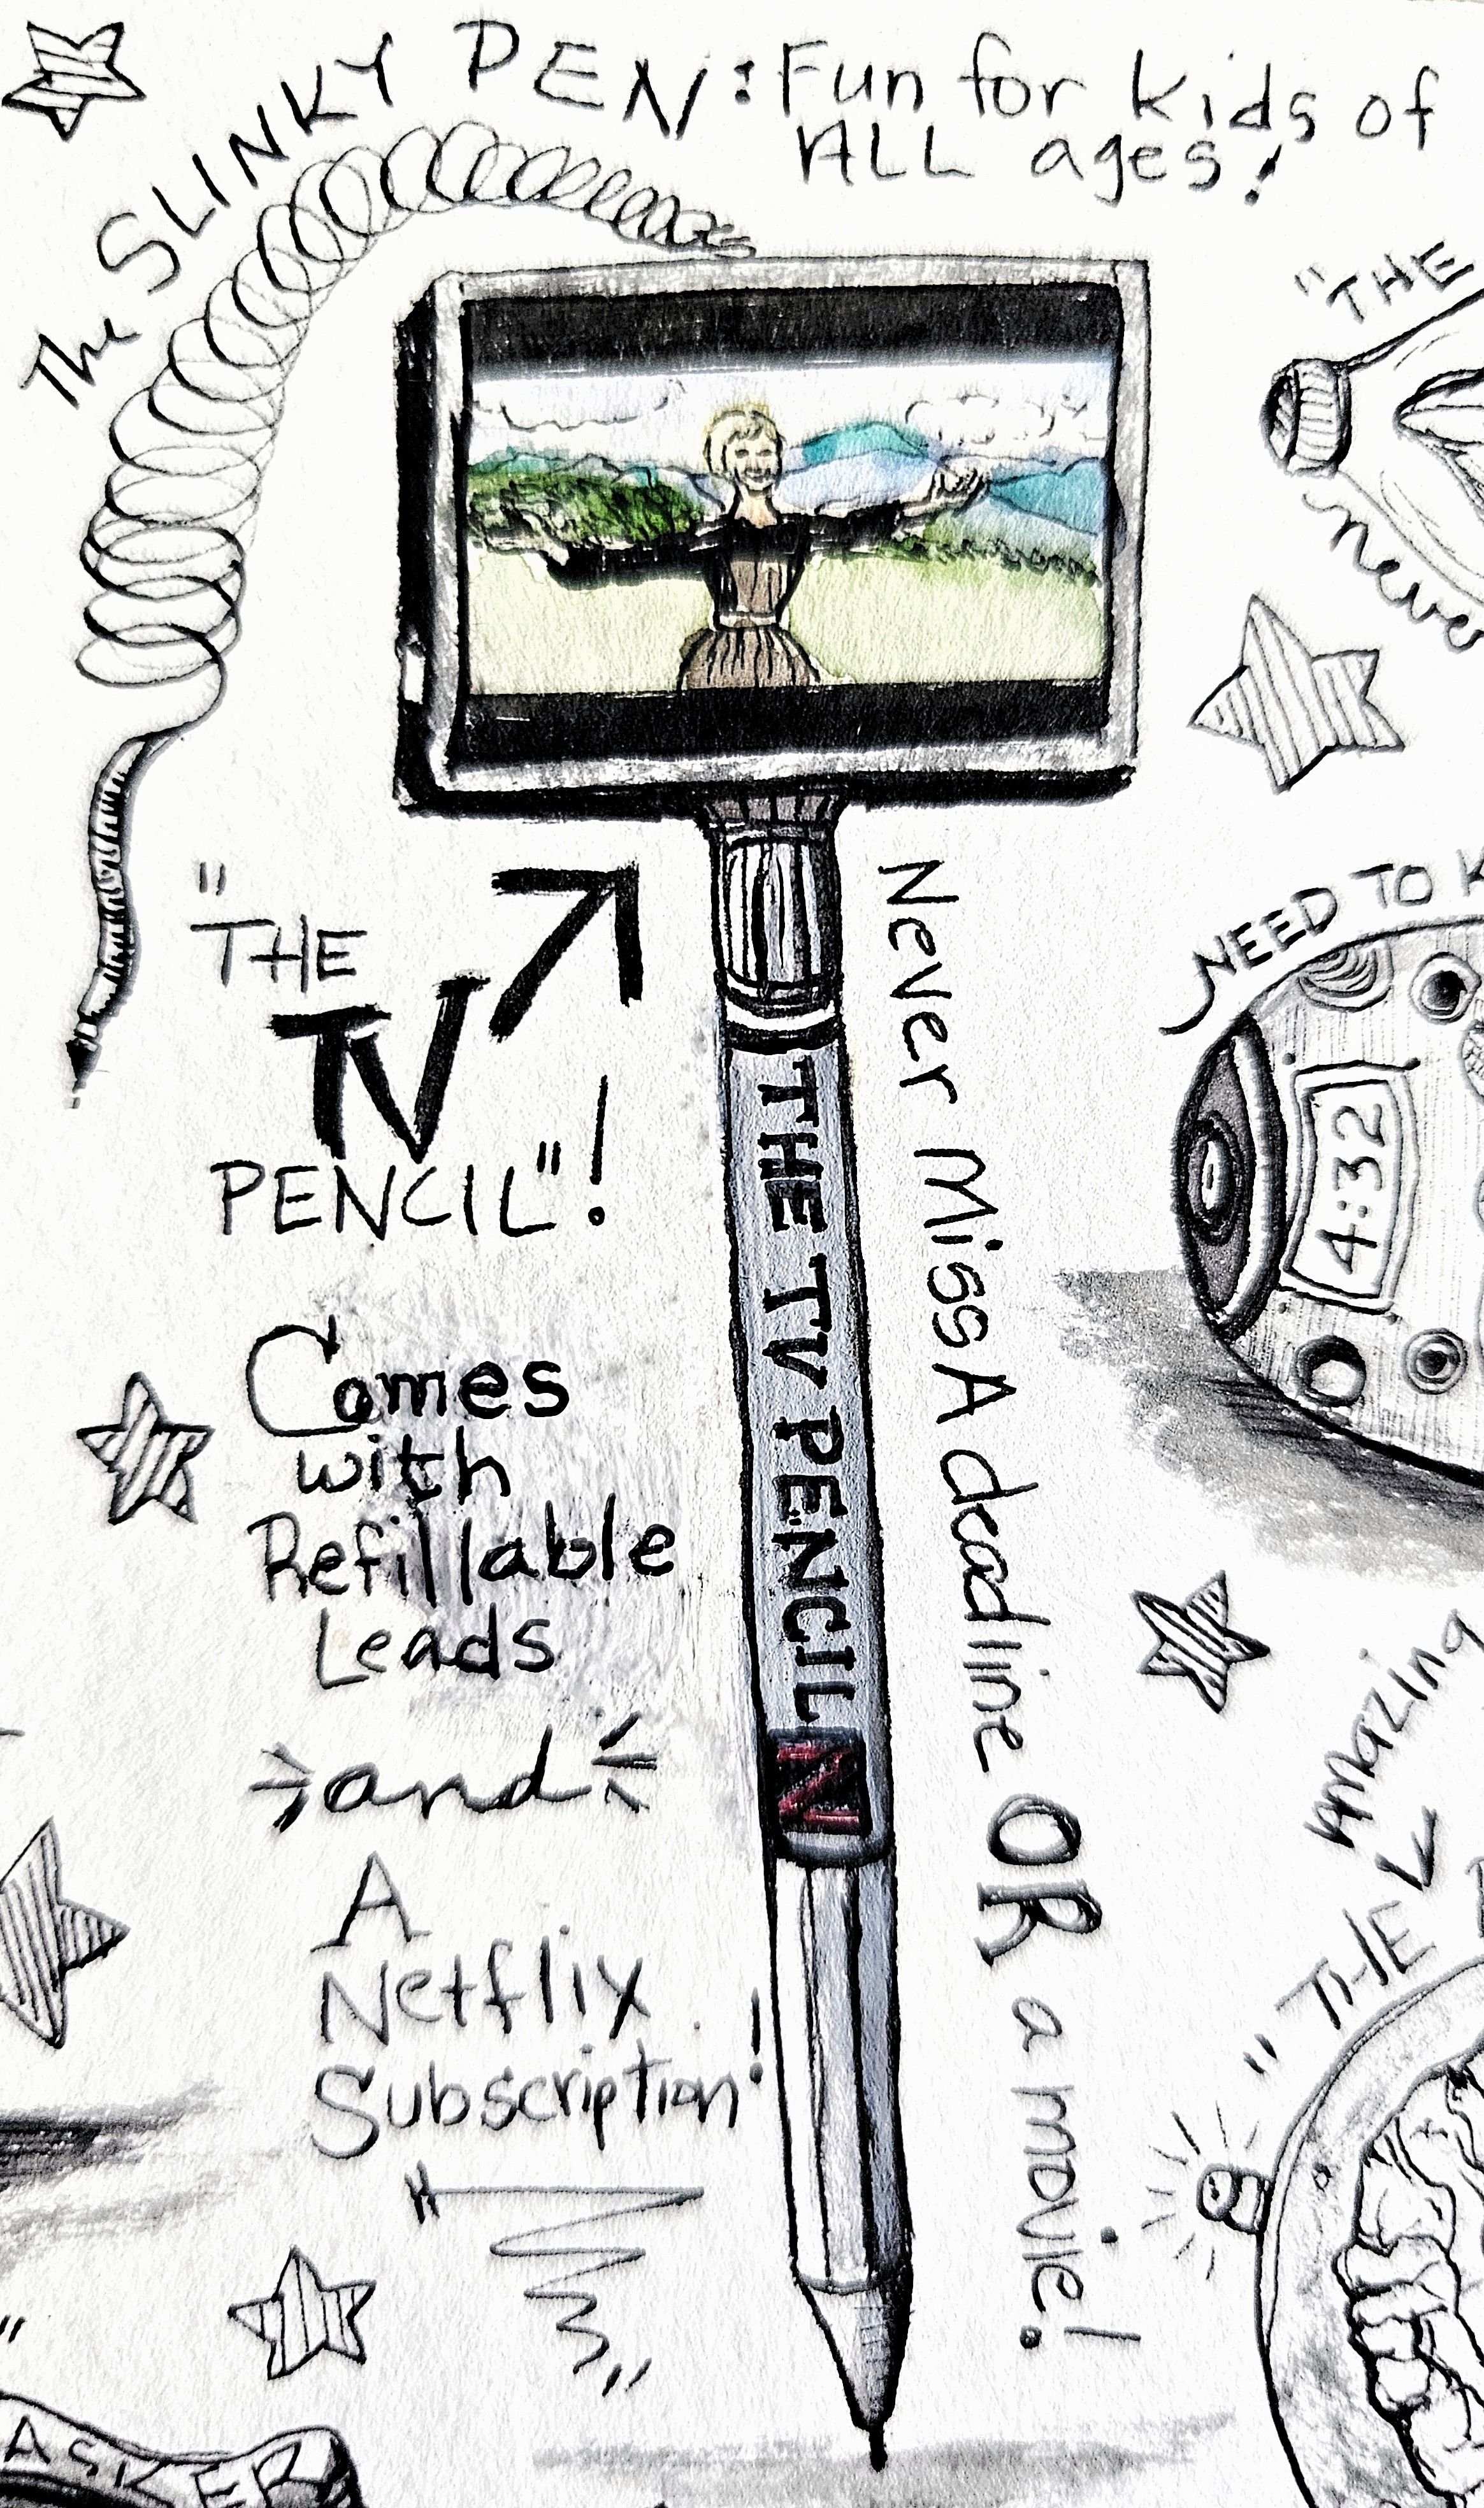 The SLINKY PEN: Fun for kids of
ALL ages!
"THE
TV
PENCIL"!
Comes
with
Refillable
Leads
and
A
Netflix
Subscription!
THE TV PENCIL
N
Never Miss A deadline OR a movie!
"THE
never
NEED TO K
4:32
Amazing
"THE
ASKER